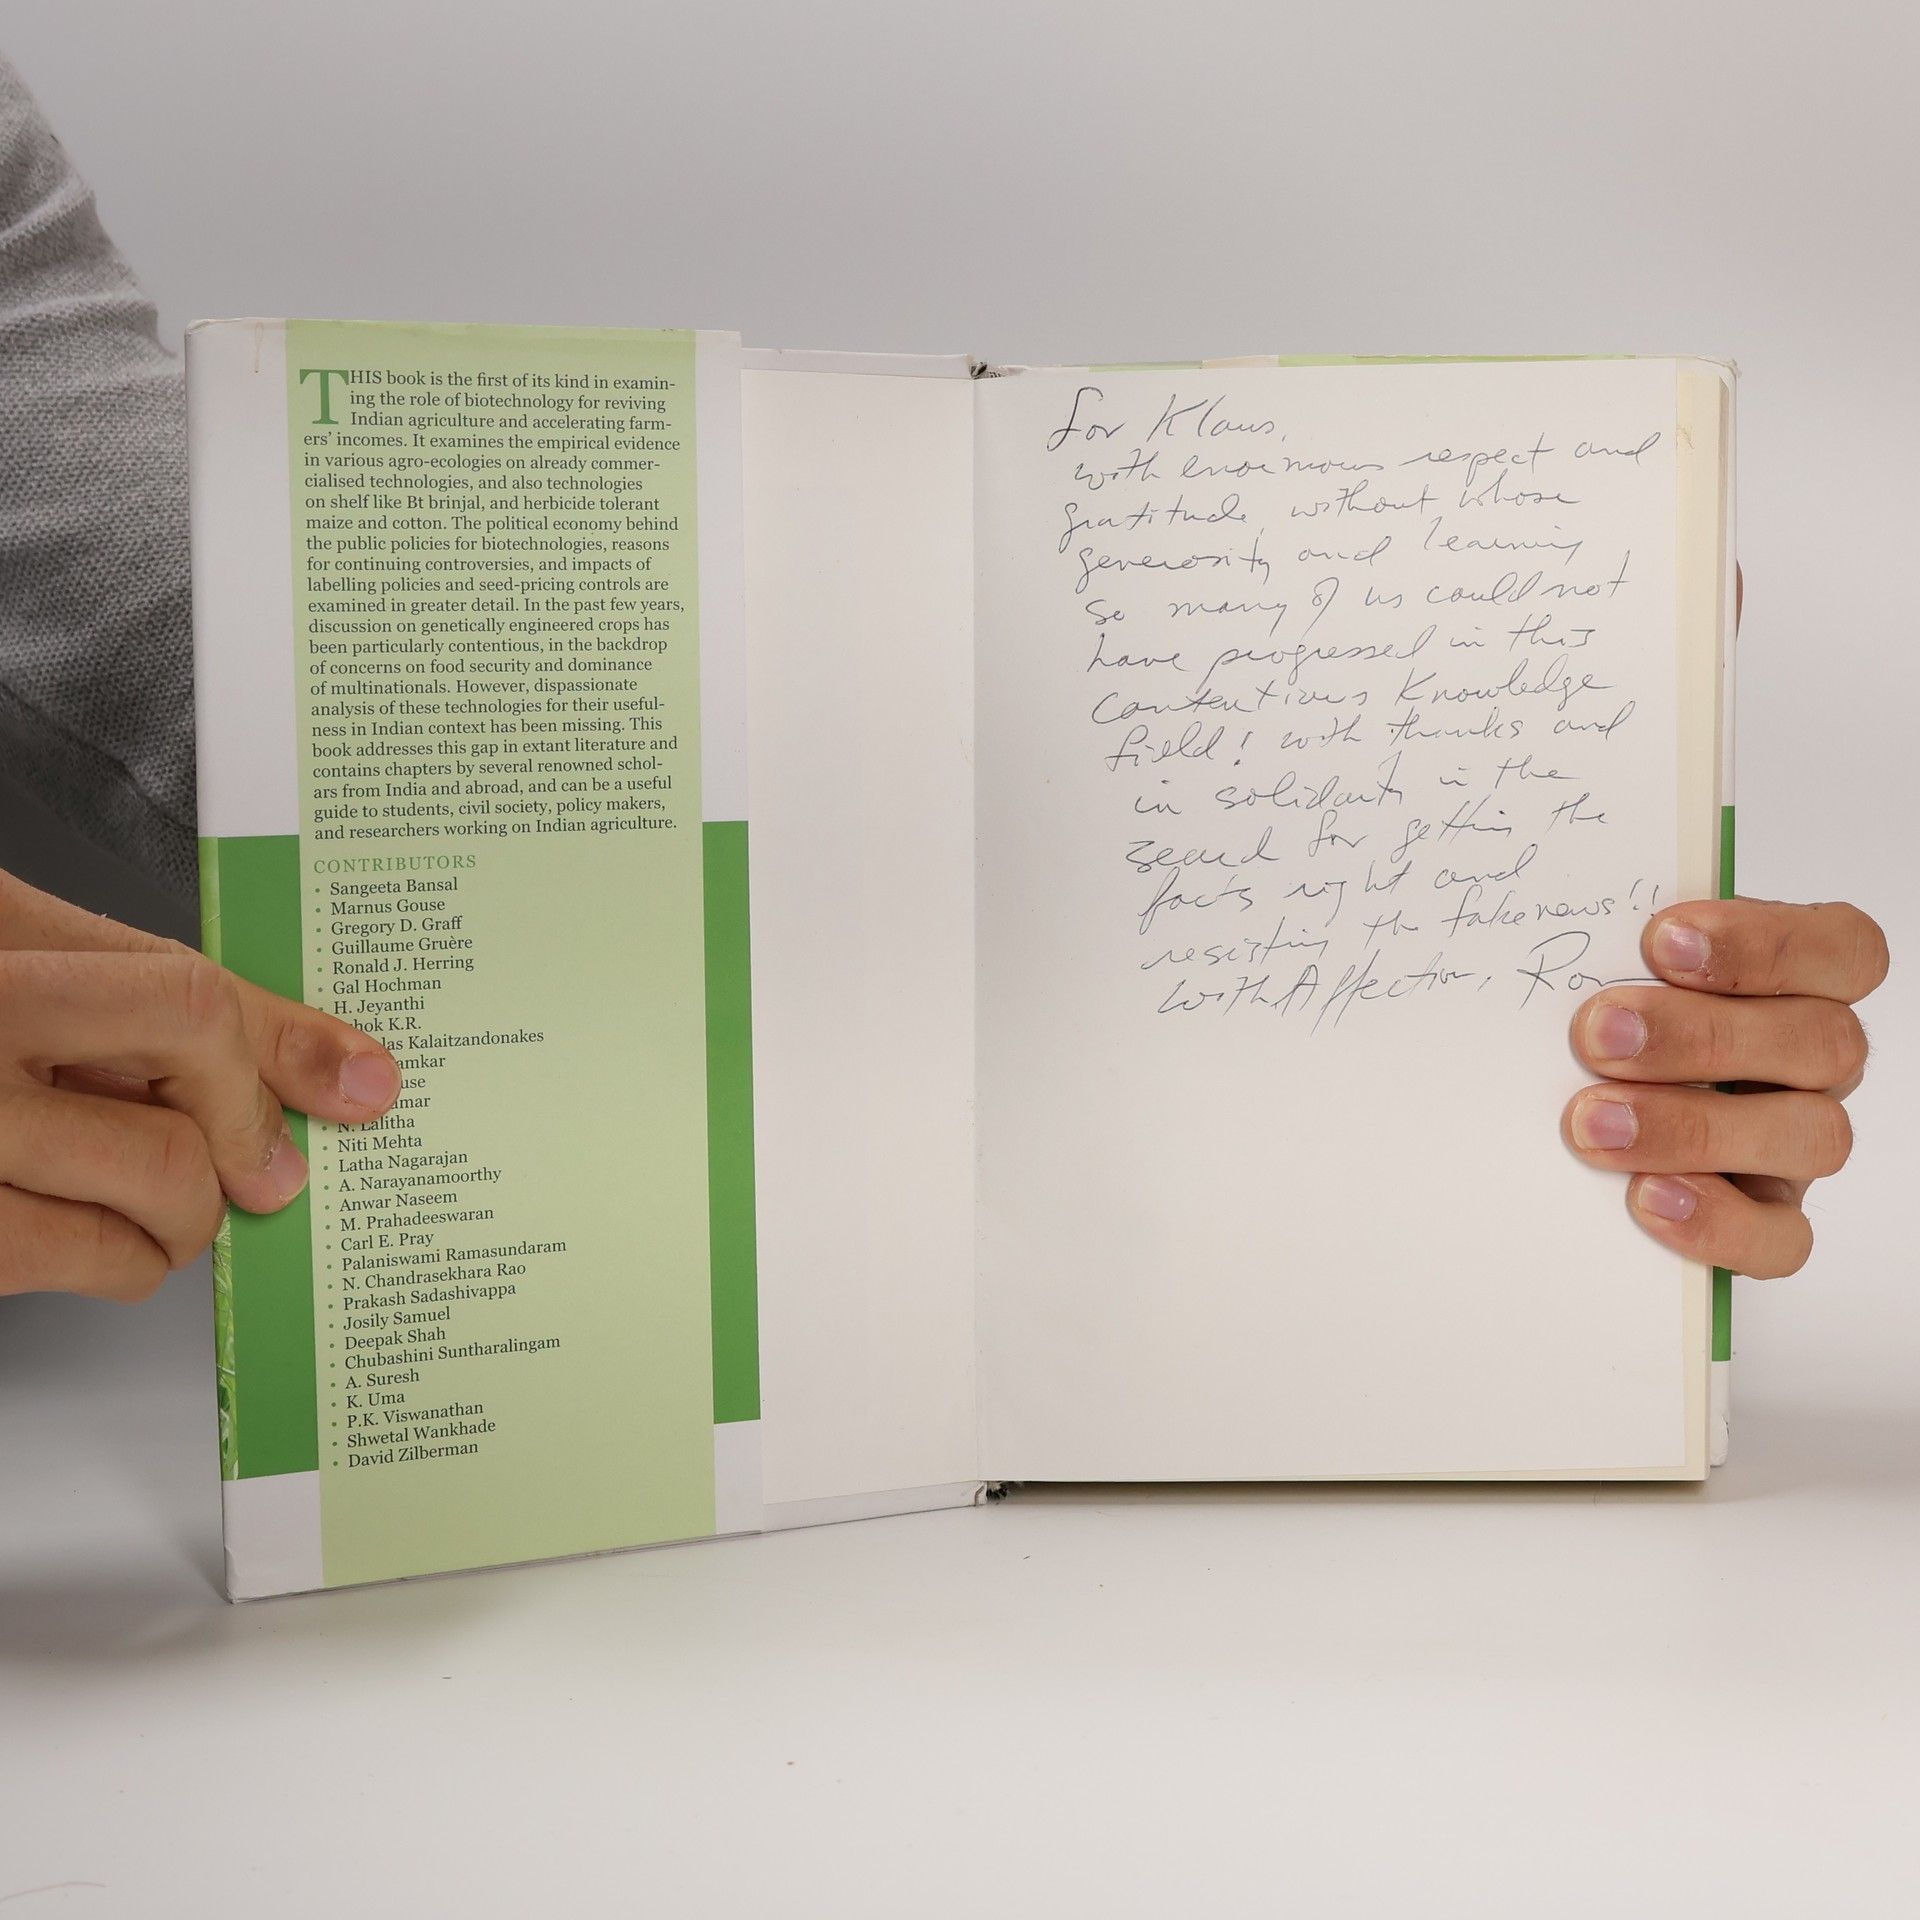 THIS book is the first of its kind in examin-
ing the role of biotechnology for reviving
Indian agriculture and accelerating farm-
ers' incomes. It examines the empirical evidence
in various agro-ecologies on already commer-
cialised technologies, and also technologies
on shelf like Bt brinjal, and herbicide tolerant
maize and cotton. The political economy behind
the public policies for biotechnologies, reasons
for continuing controversies, and impacts of
labelling policies and seed-pricing controls are
examined in greater detail. In the past few years,
discussion on genetically engineered crops has
been particularly contentious, in the backdrop
of concerns on food security and dominance
of multinationals. However, dispassionate
analysis of these technologies for their useful-
ness in Indian context has been missing. This
book addresses this gap in extant literature and
contains chapters by several renowned schol-
ars from India and abroad, and can be a useful
guide to students, civil society, policy makers,
and researchers working on Indian agriculture.
CONTRIBUTORS
• Sangeeta Bansal
• Marnus Gouse
• Gregory D. Graff
• Guillaume Gruère
• Ronald J. Herring
• Gal Hochman
• H. Jeyanthi
hok K.R.
las Kalaitzandonakes
amkar
use
umar
• N. Lalitha
• Niti Mehta
• Latha Nagarajan
• A. Narayanamoorthy
• Anwar Naseem
• M. Prahadeeswaran
• Carl E. Pray
• Palaniswami Ramasundaram
• N. Chandrasekhara Rao
• Prakash Sadashivappa
• Josily Samuel
• Deepak Shah
• Chubashini Suntharalingam
• A. Suresh
• K. Uma
• P.K. Viswanathan
• Shwetal Wankhade
• David Zilberman
for Klaus,
with enormous respect and
gratitude, without whose
generosity and learning
so many of us could not
have progressed in this
contentious knowledge
field! with thanks and
in solidarity in the
search for getting the
facts right and
resisting the fake news!!
With Affection, Ron